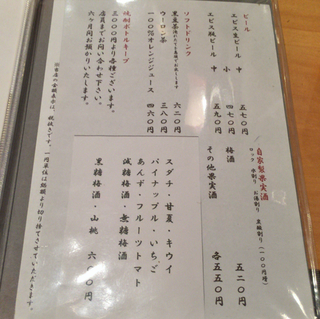 ビール
エビス生ビール 中 五七〇円
小 四七〇円
エビス瓶ビール 中 五九〇円
ソフトドリンク
黒豆茶 六二〇円
ウーロン茶 三八〇円
100%オレンジジュース 四六〇円
焼酎ボトルキープ
三〇〇〇円より各種ございます。
店員までお問い合わせ下さい。
六ヶ月間お預かりいたします。
自家製果実酒
ロック 水割り お湯割り 炭酸割り(一〇〇円増)
梅酒 五二〇円
その他果実酒 各五五〇円
スダチ・甘夏・キウイ
パイナップル・いちご
あんず・フルーツトマト
減糖梅酒・無糖梅酒
黒糖梅酒・山桃 六〇〇円
※当店の金額表示は、税抜きです。一円単位は総額より切り捨てさせていただきます。